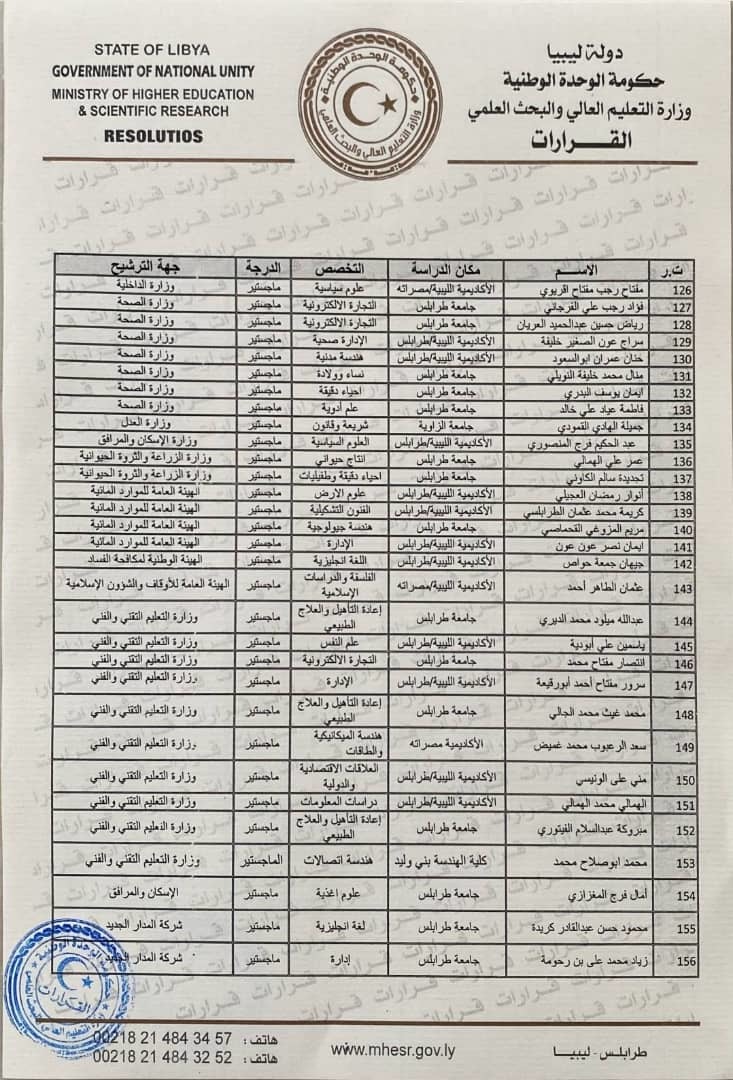 STATE OF LIBYA
GOVERNMENT OF NATIONAL UNITY
MINISTRY OF HIGHER EDUCATION
& SCIENTIFIC RESEARCH
RESOLUTIOS
دولة ليبيا
حكومة الوحدة الوطنية
وزارة التعليم العالي والبحث العلمي
القـرارات
حكومة الوحدة الوطنية
وزارة التعليم العالي والبحث العلمي
ت.ر الاســم مكان الدراسة التخصص الدرجة جهة الترشيح
126 مفتاح رجب مفتاح اقريوي الأكاديمية الليبية/مصراته علوم سياسية ماجستير وزارة الداخلية
127 فؤاد رجب علي الفرجاني جامعة طرابلس التجارة الالكترونية ماجستير وزارة الصحة
128 رياض حسين عبدالحميد العريان جامعة طرابلس التجارة الالكترونية ماجستير وزارة الصحة
129 سراج عون الصغير خليفة الأكاديمية الليبية/طرابلس الإدارة صحية ماجستير وزارة الصحة
130 حنان عمران ابوالسعود الأكاديمية الليبية/طرابلس هندسة مدنية ماجستير وزارة الصحة
131 منال محمد خليفة النويلي جامعة طرابلس نساء وولادة ماجستير وزارة الصحة
132 ايمان يوسف البدري جامعة طرابلس احياء دقيقة ماجستير وزارة الصحة
133 فاطمة عياد علي خالد جامعة طرابلس علم أدوية ماجستير وزارة الصحة
134 جميلة الهادي القمودي جامعة الزاوية شريعة وقانون ماجستير وزارة العدل
135 عبد الحكيم فرج المنصوري الأكاديمية الليبية/طرابلس العلوم السياسية ماجستير وزارة الإسكان والمرافق
136 عمر علي الهمالي جامعة طرابلس انتاج حيواني ماجستير وزارة الزراعة والثروة الحيوانية
137 تجديدة سالم الكاوني جامعة طرابلس احياء دقيقة وطفيليات ماجستير وزارة الزراعة والثروة الحيوانية
138 أنوار رمضان العجيلي الأكاديمية الليبية/طرابلس علوم الارض ماجستير الهيئة العامة للموارد المائية
139 كريمة محمد عثمان الطرابلسي الأكاديمية الليبية/طرابلس الفنون التشكيلية ماجستير الهيئة العامة للموارد المائية
140 مريم المزوغي القحماصي جامعة طرابلس هندسة جيولوجية ماجستير الهيئة العامة للموارد المائية
141 ايمان نصر عون عون الأكاديمية الليبية/طرابلس الإدارة ماجستير الهيئة العامة للموارد المائية
142 جيهان جمعة حواص جامعة طرابلس اللغة انجليزية ماجستير الهيئة الوطنية لمكافحة الفساد
143 عثمان الطاهر أحمد الأكاديمية الليبية/مصراته الفلسفة والدراسات الإسلامية ماجستير الهيئة العامة للأوقاف والشؤون الإسلامية
144 عبدالله ميلود محمد الديري جامعة طرابلس إعادة التأهيل والعلاج الطبيعي ماجستير وزارة التعليم التقني والفني
145 ياسمين علي أبودية الأكاديمية الليبية/طرابلس علم النفس ماجستير وزارة التعليم التقني والفني
146 انتصار مفتاح محمد جامعة طرابلس التجارة الالكترونية ماجستير وزارة التعليم التقني والفني
147 سرور مفتاح أحمد أبورقيعة الأكاديمية الليبية/طرابلس الإدارة ماجستير وزارة التعليم التقني والفني
148 محمد غيث محمد الجالي جامعة طرابلس إعادة التأهيل والعلاج الطبيعي ماجستير وزارة التعليم التقني والفني
149 سعد الرعبوب محمد غميض الأكاديمية مصراته هندسة الميكانيكية والطاقات ماجستير وزارة التعليم التقني والفني
150 مني على الونيسي الأكاديمية الليبية/طرابلس العلاقات الاقتصادية والدولية ماجستير وزارة التعليم التقني والفني
151 الهمالي محمد الهمالي الأكاديمية الليبية/طرابلس دراسات المعلومات ماجستير وزارة التعليم التقني والفني
152 مبروكة عبدالسلام الفيتوري جامعة طرابلس إعادة التأهيل والعلاج الطبيعي ماجستير وزارة التعليم التقني والفني
153 محمد ابوصلاح محمد كلية الهندسة بني وليد هندسة اتصالات الماجستير وزارة التعليم التقني والفني
154 أمال فرج المغزازي جامعة طرابلس علوم اغذية ماجستير الإسكان والمرافق
155 محمود حسن عبدالقادر كريدة جامعة طرابلس لغة انجليزية ماجستير شركة المدار الجديد
156 زياد محمد على بن رحومة جامعة طرابلس إدارة ماجستير شركة المدار الجديد
القرارات
هاتف : 00218 21 484 34 57
هاتف : 00218 21 484 32 52
www.mhesr.gov.ly
طرابلس - ليبيـا